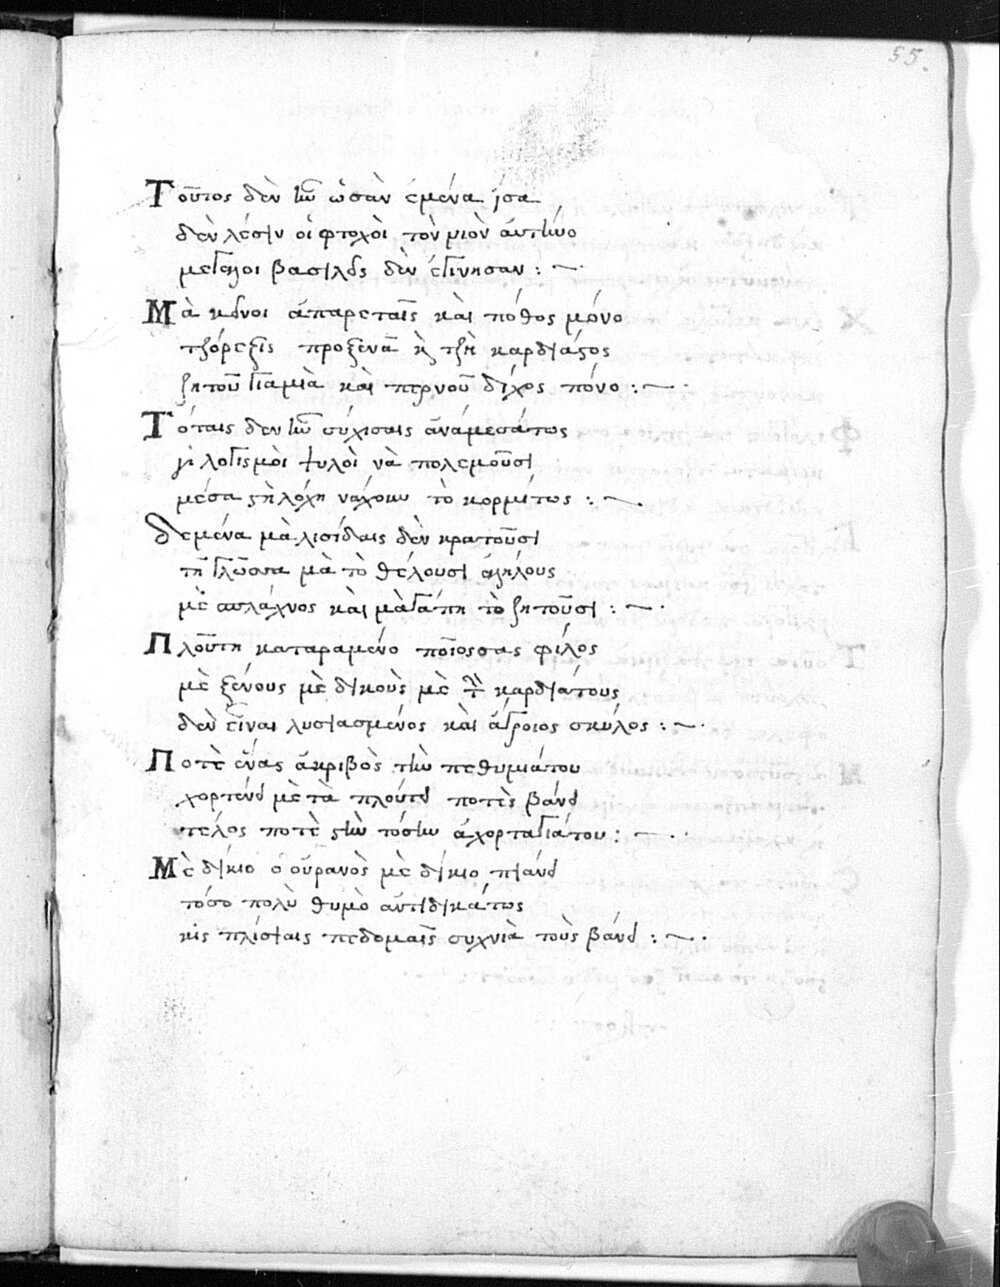 55.
Τοῦτος δὲν ἰῶ ὡσὰν ἐμένα ἴσα
δὲν λέσιν οἱ φτοχοὶ τὸν μιὸν ἀντίνο
μεγάλοι βασιλὸς δὲν ἐγίνησαν : ~ ·
Μὰ κἄνοι ἀπαρεταῖς καὶ πόθος μόνο
τζόρεξις προξενᾶ κ τζῆ καρδιάςος
ζητοῦ γιαμιὰ καὶ περνοῦ δίχος πόνο : ~ ·
Τόταις δεν ἰῶ σύχισαις ἀνάμεσάτως
γἱ λογισμοὶ ψυλοὶ νὰ πολεμοῦσι
μέσα ςὴ λόχη νάχουν τὸ κορμίτως : ~
δεμένα μὰ λισίδαις δὲν κρατοῦσι
τῆ γλῶσσα μὰ τὸ θέλουσι ἀγγέλους
μὲ σπλάχνος καὶ μὰγάπη τὸ ζητοῦσι : ~ ·
Πλούτη καταραμένο ποῖοςσας φίλος
μὲ ξένους μὲ δικοὺς μὲ τ καρδιάτους
δὲν εἶναι λυσιασμένος καὶ ἄγροιος σκύλος : ~ ·
Ποτὲ ἕνας ἀκριβὸς τὴν πεθυμιάτου
χορτένει μὲ τὰ πλούτη ποτὲς βάνει
τέλος ποτὲ ςτὴν τόσην ἀχορταγιάτου : ~ ·
Μὲ δίκιο ὁ οὐρανὸς μὲ δίκιο πιάνει
τόσο πολὺ θυμὸ ἀντίδικάτως
κὶς πλίσιαις πεδομαῖς συχνιὰ τοὺς βάνει : ~ ·